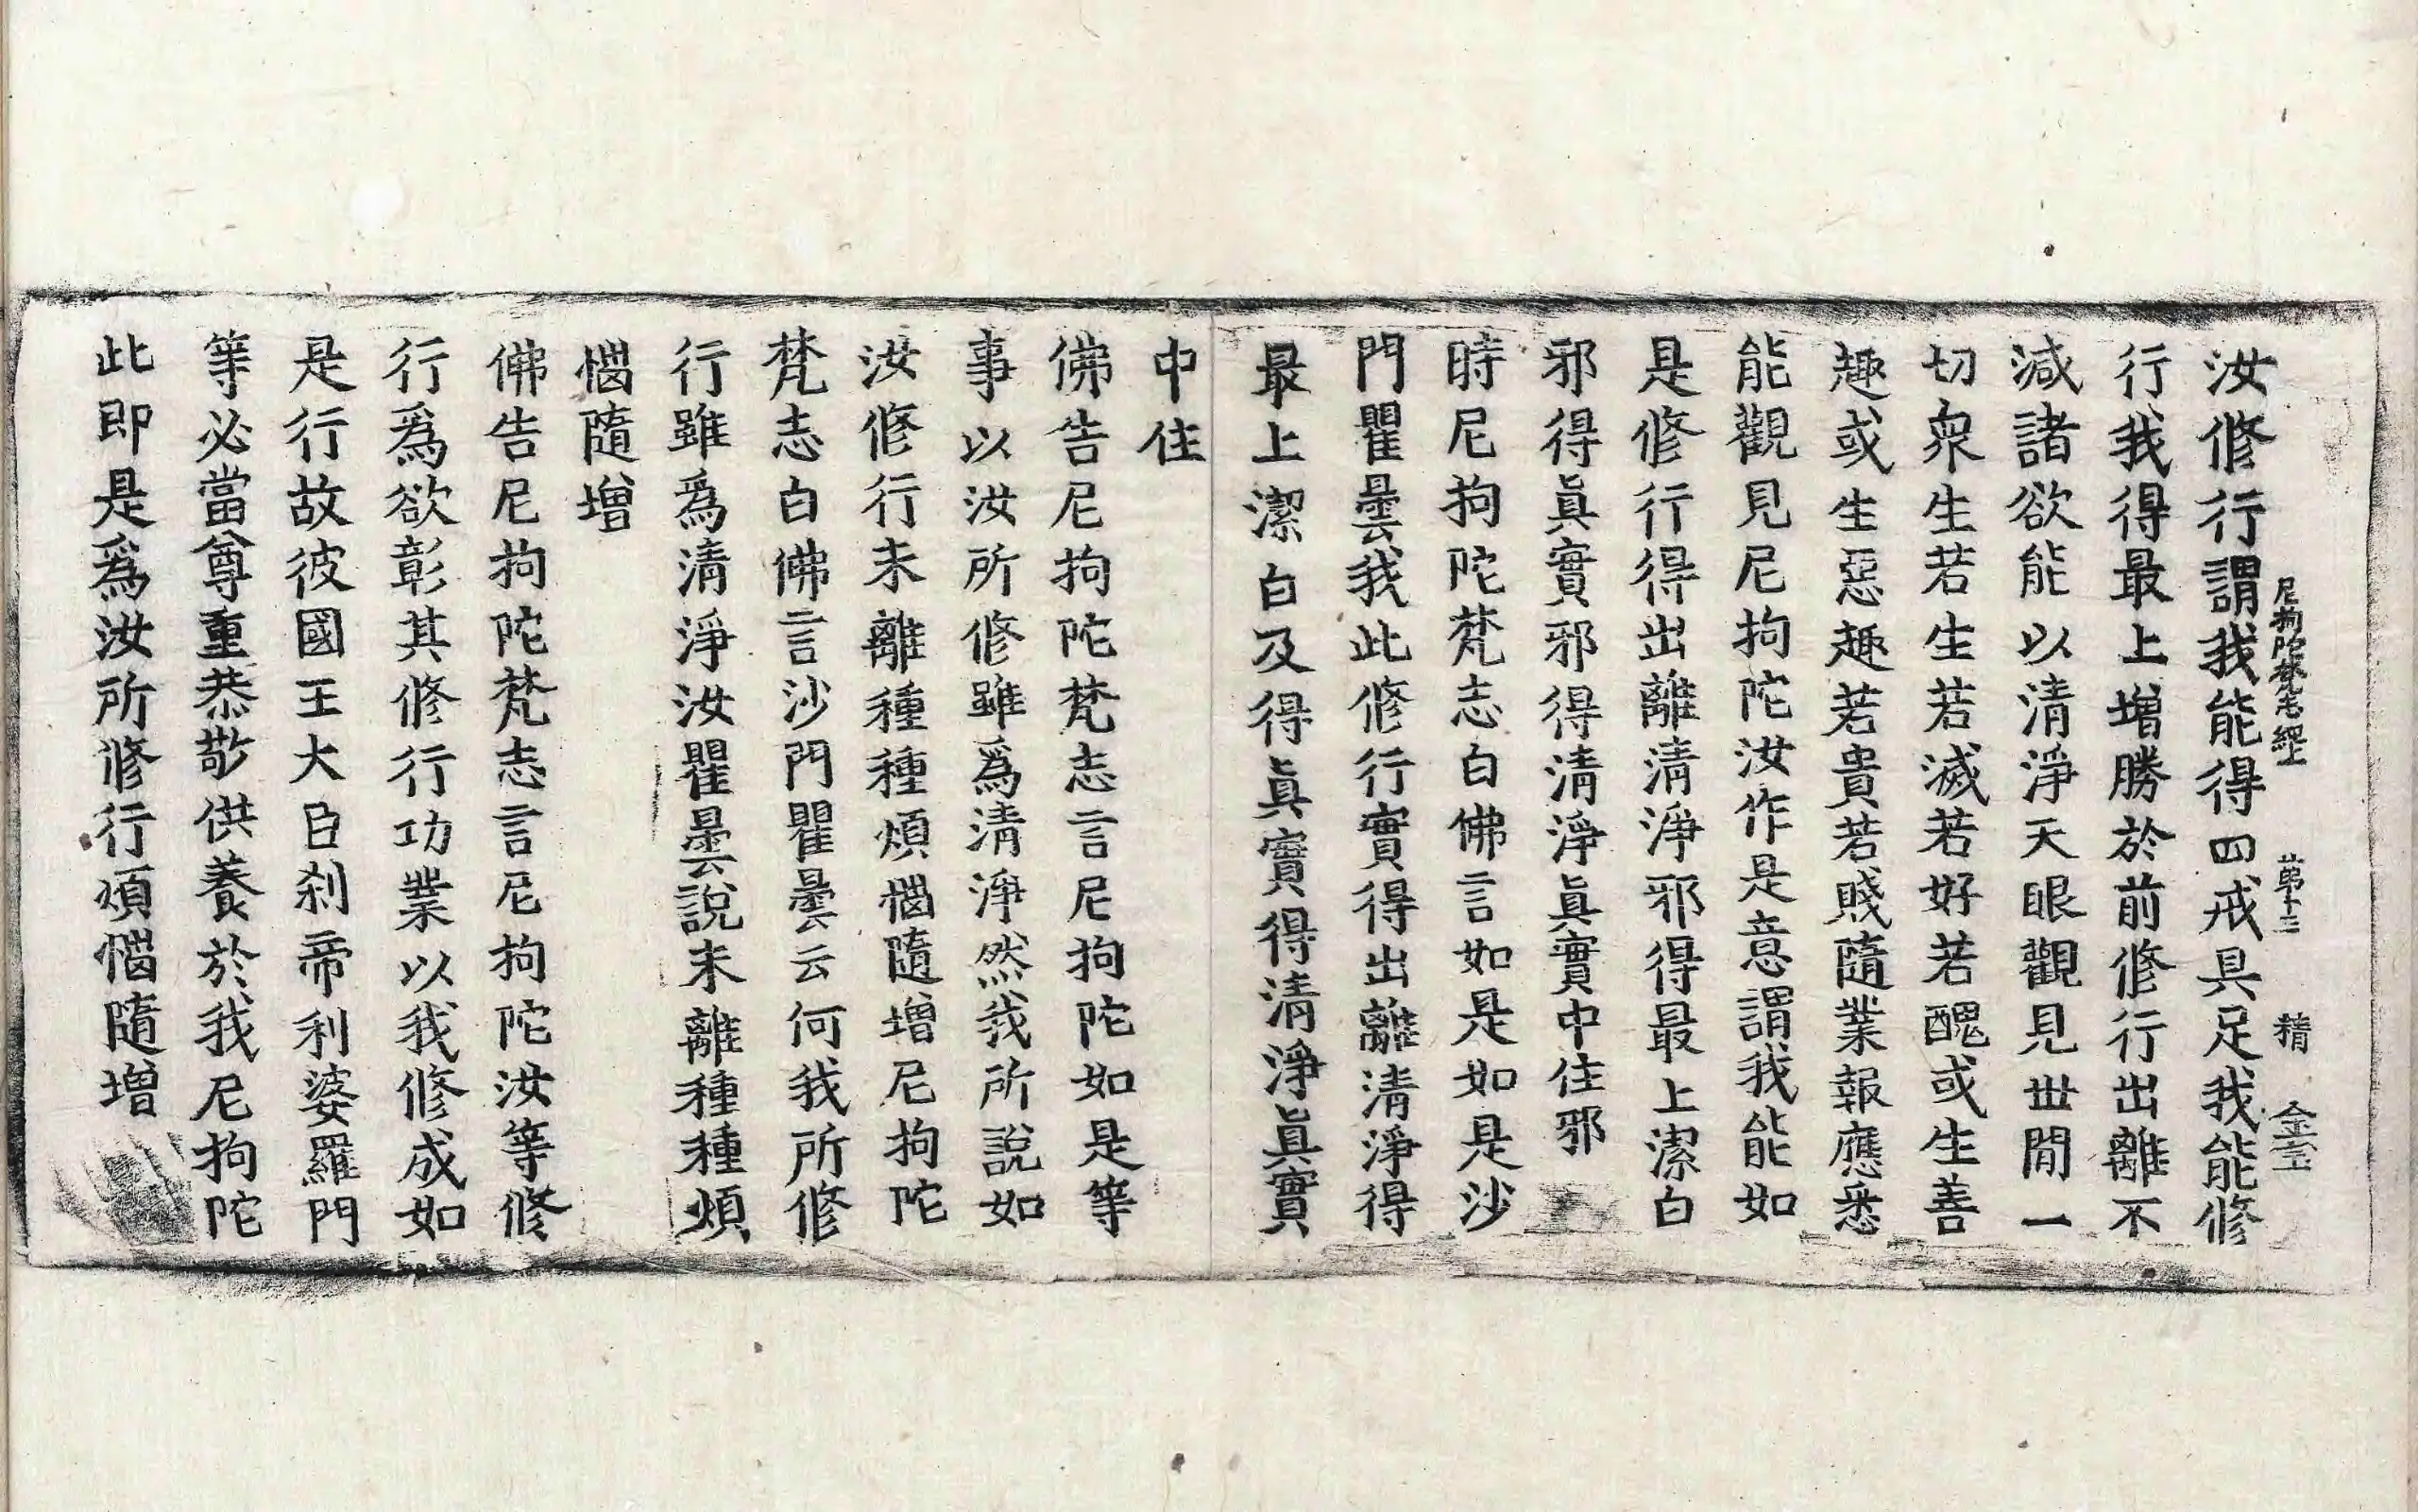 汝修行謂我能得四戒具足我能修
尼拘陀梵志經上 第十三 精
行我得最上增勝於前修行出離不
減諸欲能以清淨天眼觀見世閒一
切衆生若生若滅若好若醜或生善
趣或生惡趣若貴若賤隨業報應悉
能觀見尼拘陀汝作是意謂我能如
是修行得出離清淨邪得最上潔白
邪得眞實邪得清淨眞實中住邪
時尼拘陀梵志白佛言如是如是沙
門瞿曇我此修行實得出離清淨得
最上潔白及得眞實得清淨眞實
中住
佛告尼拘陀梵志言尼拘陀如是等
事以汝所修雖爲清淨然我所說如
汝修行未離種種煩惱隨增尼拘陀
梵志白佛言沙門瞿曇云何我所修
行雖爲清淨汝瞿曇說未離種種煩
惱隨增
佛告尼拘陀梵志言尼拘陀汝等修
行爲欲彰其修行功業以我修成如
是行故彼國王大臣刹帝利婆羅門
等必當尊重恭敬供養於我尼拘陀
此即是爲汝所修行煩惱隨增